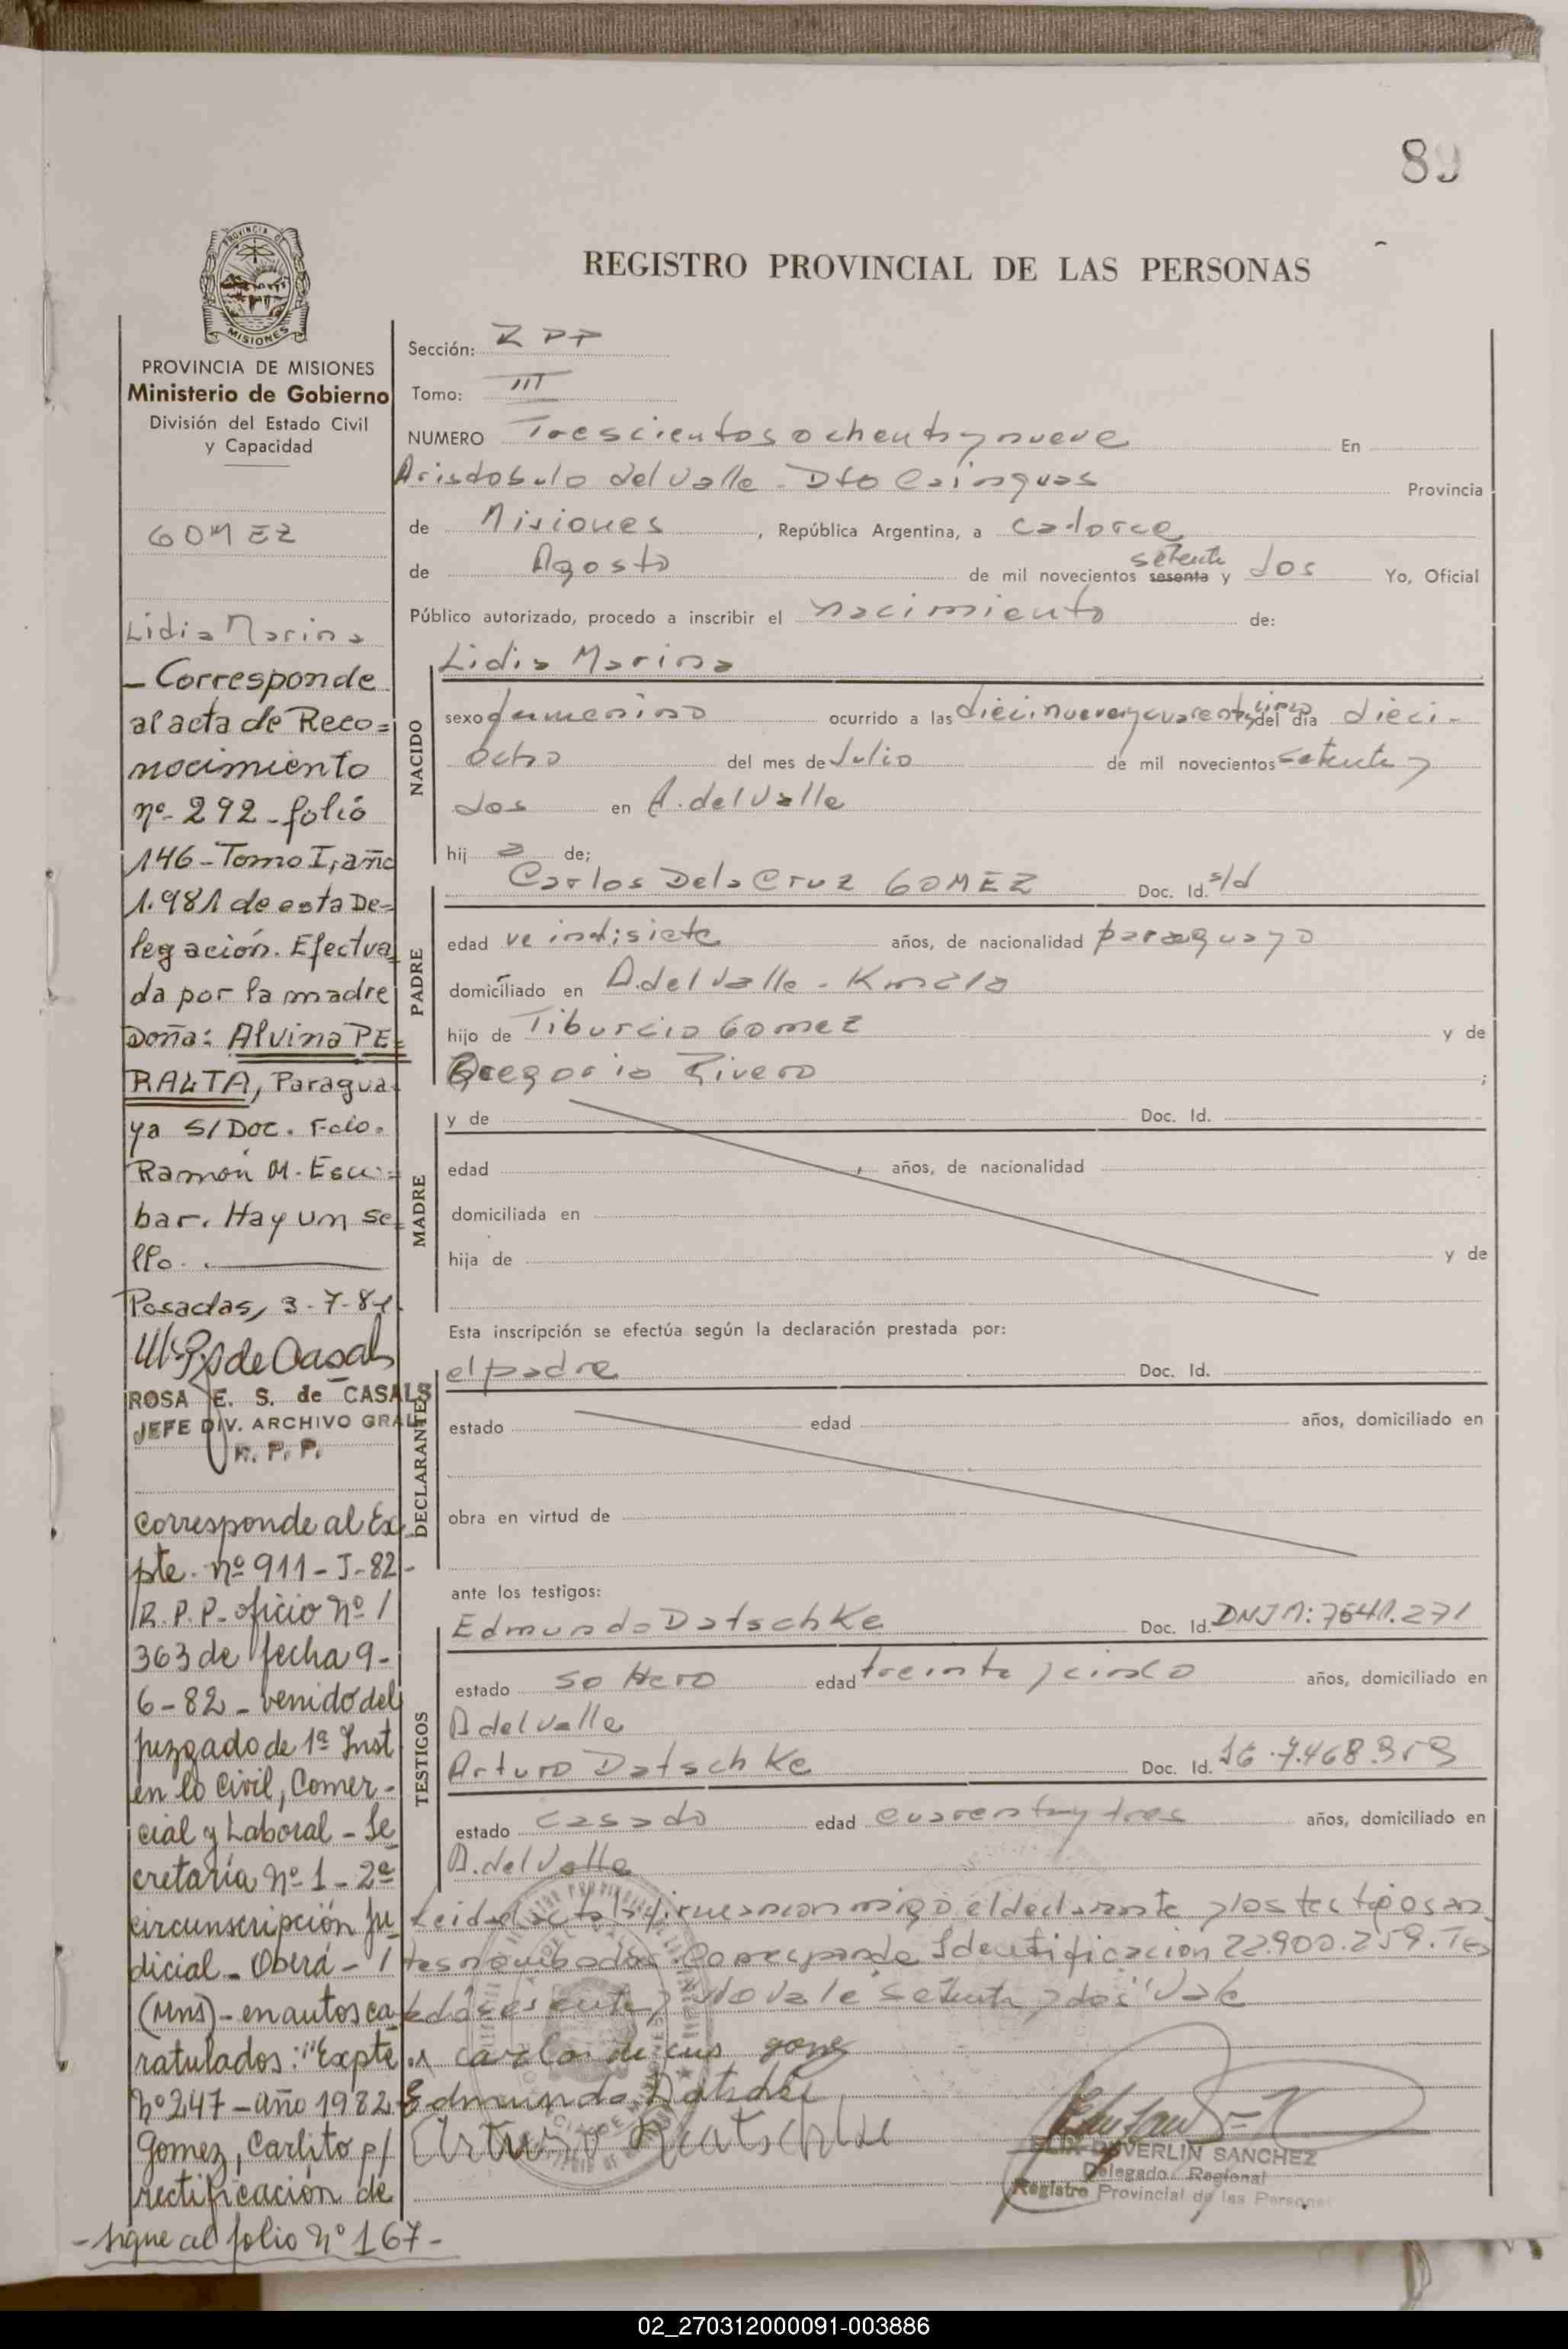 89
REGISTRO PROVINCIAL DE LAS PERSONAS
PROVINCIA DE
MISIONES
PROVINCIA DE MISIONES
Ministerio de Gobierno
División del Estado Civil
y Capacidad
GOMEZ
Lidia Marina
- Corresponde
al acta de Reco=
nocimiento
nº- 292 - folio
146 - Tomo I, año
1.981 de esta De-
legación. Efectua
da por la madre
Doña: Alvina PE=
RALTA, Paragua-
ya S/Doc. Fdo.
Ramón M. Escu=
bar. Hay un se=
llo.
Posadas, 3-7-81.
ROSA E. S. de CASALS
JEFE DIV. ARCHIVO GRAL
R. P. P.
Corresponde al Ex-
pte. nº 911-J-82-
R.P.P. oficio nº 1
363 de fecha 9-
6-82 - venido del
juzgado de 1ª Inst
en lo Civil, Comer-
cial y Laboral - Se
cretaría nº 1 - 2ª
circunscripción Ju
dicial - Oberá - 1
(Mns) - en autos ca
ratulados: "Expte
nº 247 - año 1982
Gomez, Carlito p/
rectificación de
- sigue al folio nº 167 -
Sección:
Tomo: III
NUMERO Trescientos ochenta y nueve En
Aristobulo del Valle - Dto Cainguas Provincia
de Misiones, República Argentina, a catorce
de Agosto de mil novecientos sesenta setenta y dos Yo, Oficial
Público autorizado, procedo a inscribir el nacimiento de:
NACIDO
Lidia Marina
sexo femenino ocurrido a las diecinueve y cuarenta y cinco del día dieci-
ocho del mes de Julio de mil novecientos setenta y
dos en A. del Valle
hij a de;
PADRE
Carlos Dela Cruz GOMEZ Doc. Id. s/d
edad veintisiete años, de nacionalidad paraguayo
domiciliado en A. del Valle -
hijo de Tiburcio Gomez y de
Gregoria Rivero ;
MADRE
y de Doc. Id.
edad años, de nacionalidad
domiciliada en
hija de y de
Esta inscripción se efectúa según la declaración prestada por:
DECLARANTES
el padre Doc. Id.
estado edad años, domiciliado en
obra en virtud de
ante los testigos:
TESTIGOS
Edmundo Datschke Doc. Id. DNI M: 7541.271
estado soltero edad treinta y cinco años, domiciliado en
A del Valle
Arturo Datschke Doc. Id. 7.468.959
estado casado edad cuarenta y tres años, domiciliado en
A. del Valle
Leida el acta la firman conmigo el declarante y los testigos an
tes nombados. Corresponde Identificacion 22.900.259. Tes
tado sesenta y no vale setenta y dos "Vale
Carlos de cus gomez
Edmundo Datschke
Arturo Datschke
FELIX DUVERLIN SANCHEZ
Delegado Regional
Registro Provincial de las Personas
02_270312000091-003886